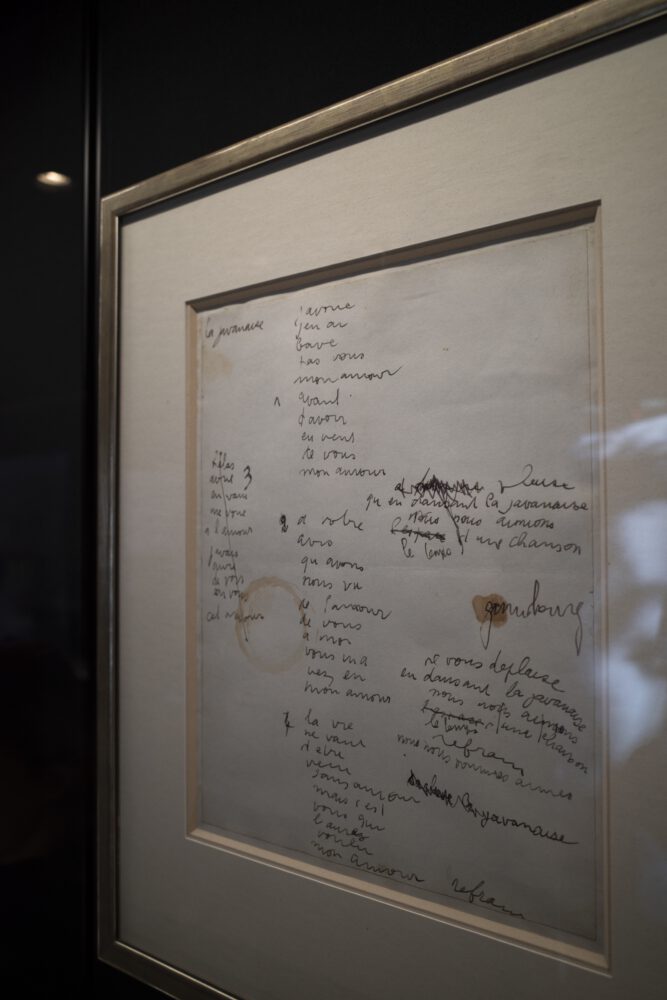 la javanaise
j'avoue
j'en ai
bavé
pas vous
mon amour
1 avant
d'avoir
eu vent
de vous
mon amour
2 à votre
avis
qu'avons
nous vu
de l'amour
de vous
à moi
vous m'a
vez eu
mon amour
hélas 3
avril
en vain
me voue
à l'amour
j'avais
envie
de voir
en vous
cet amour
4 la vie
ne vaut
d'être
vécue
sans amour
mais c'est
vous qui
l'avez
voulu
mon amour
plaise
qu'en dansant la javanaise
nous nous aimions
le temps d'une chanson
gainsbourg
ne vous déplaise
en dansant la javanaise
nous nous aimions
le temps d'une chanson
refrain
nous nous sommes aimés
la javanaise
refrain